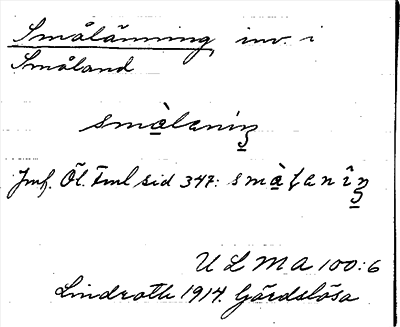 Smålänning, inv. i
Småland
smàlaniŋ
Jmf. Öl. Fml sid 347: smàlanîŋ
ULMA 100:6
Lindroth 1914. Gärdslösa